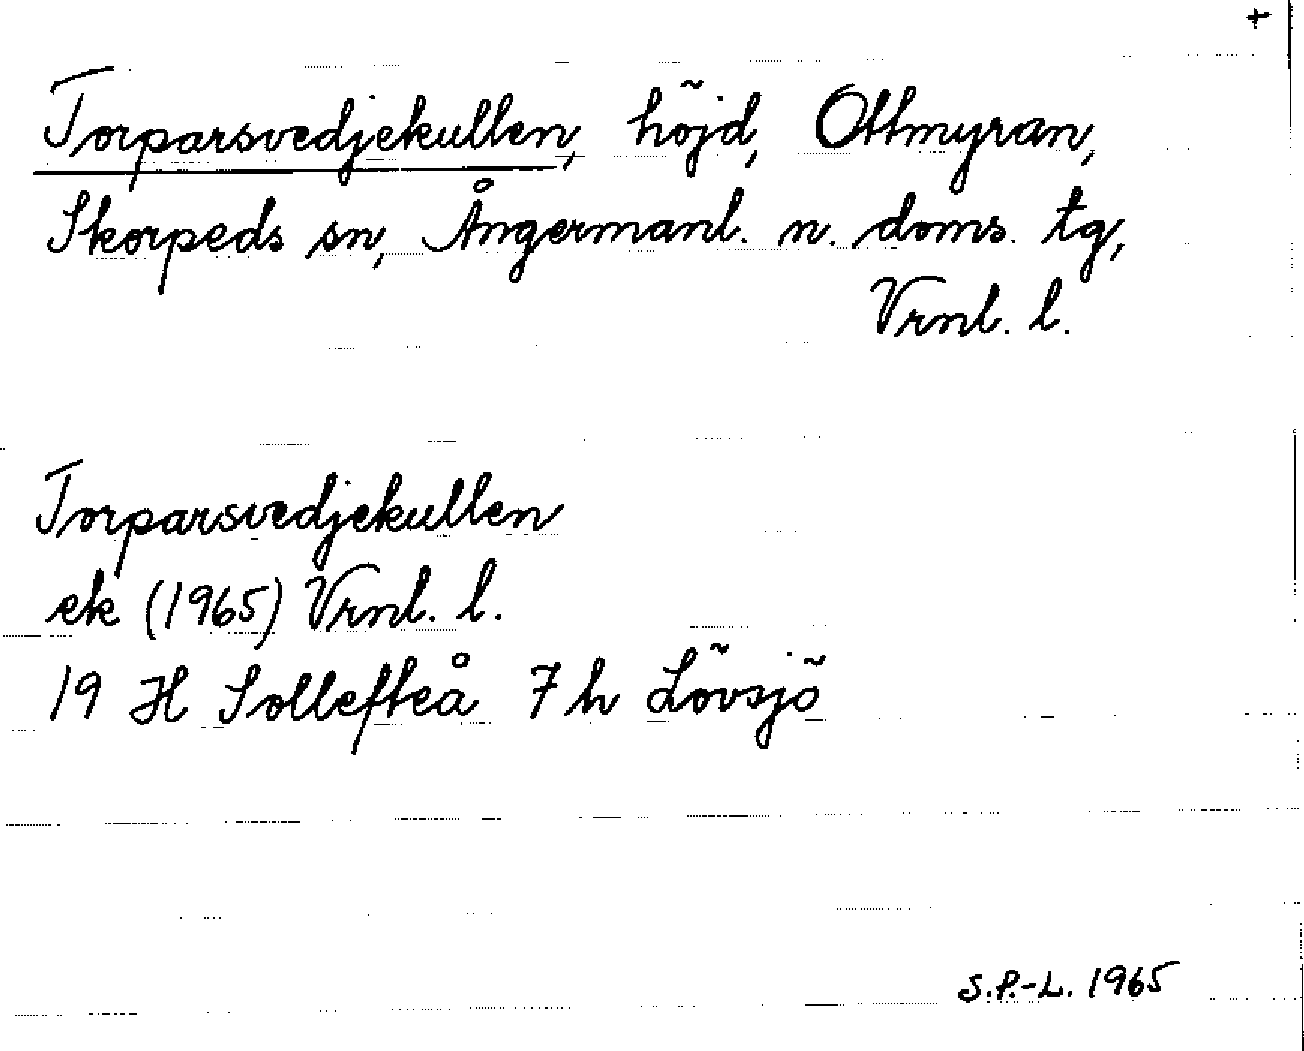 +
Torparsvedjekullen, höjd, Ottmyran,
Skorpeds sn, Ångermanl. n. doms. tg,
Vrnl. l.
Torparsvedjekullen
ek (1965) Vrnl. l.
19 H Sollefteå 7 h Lövsjö
S.P.-L. 1965